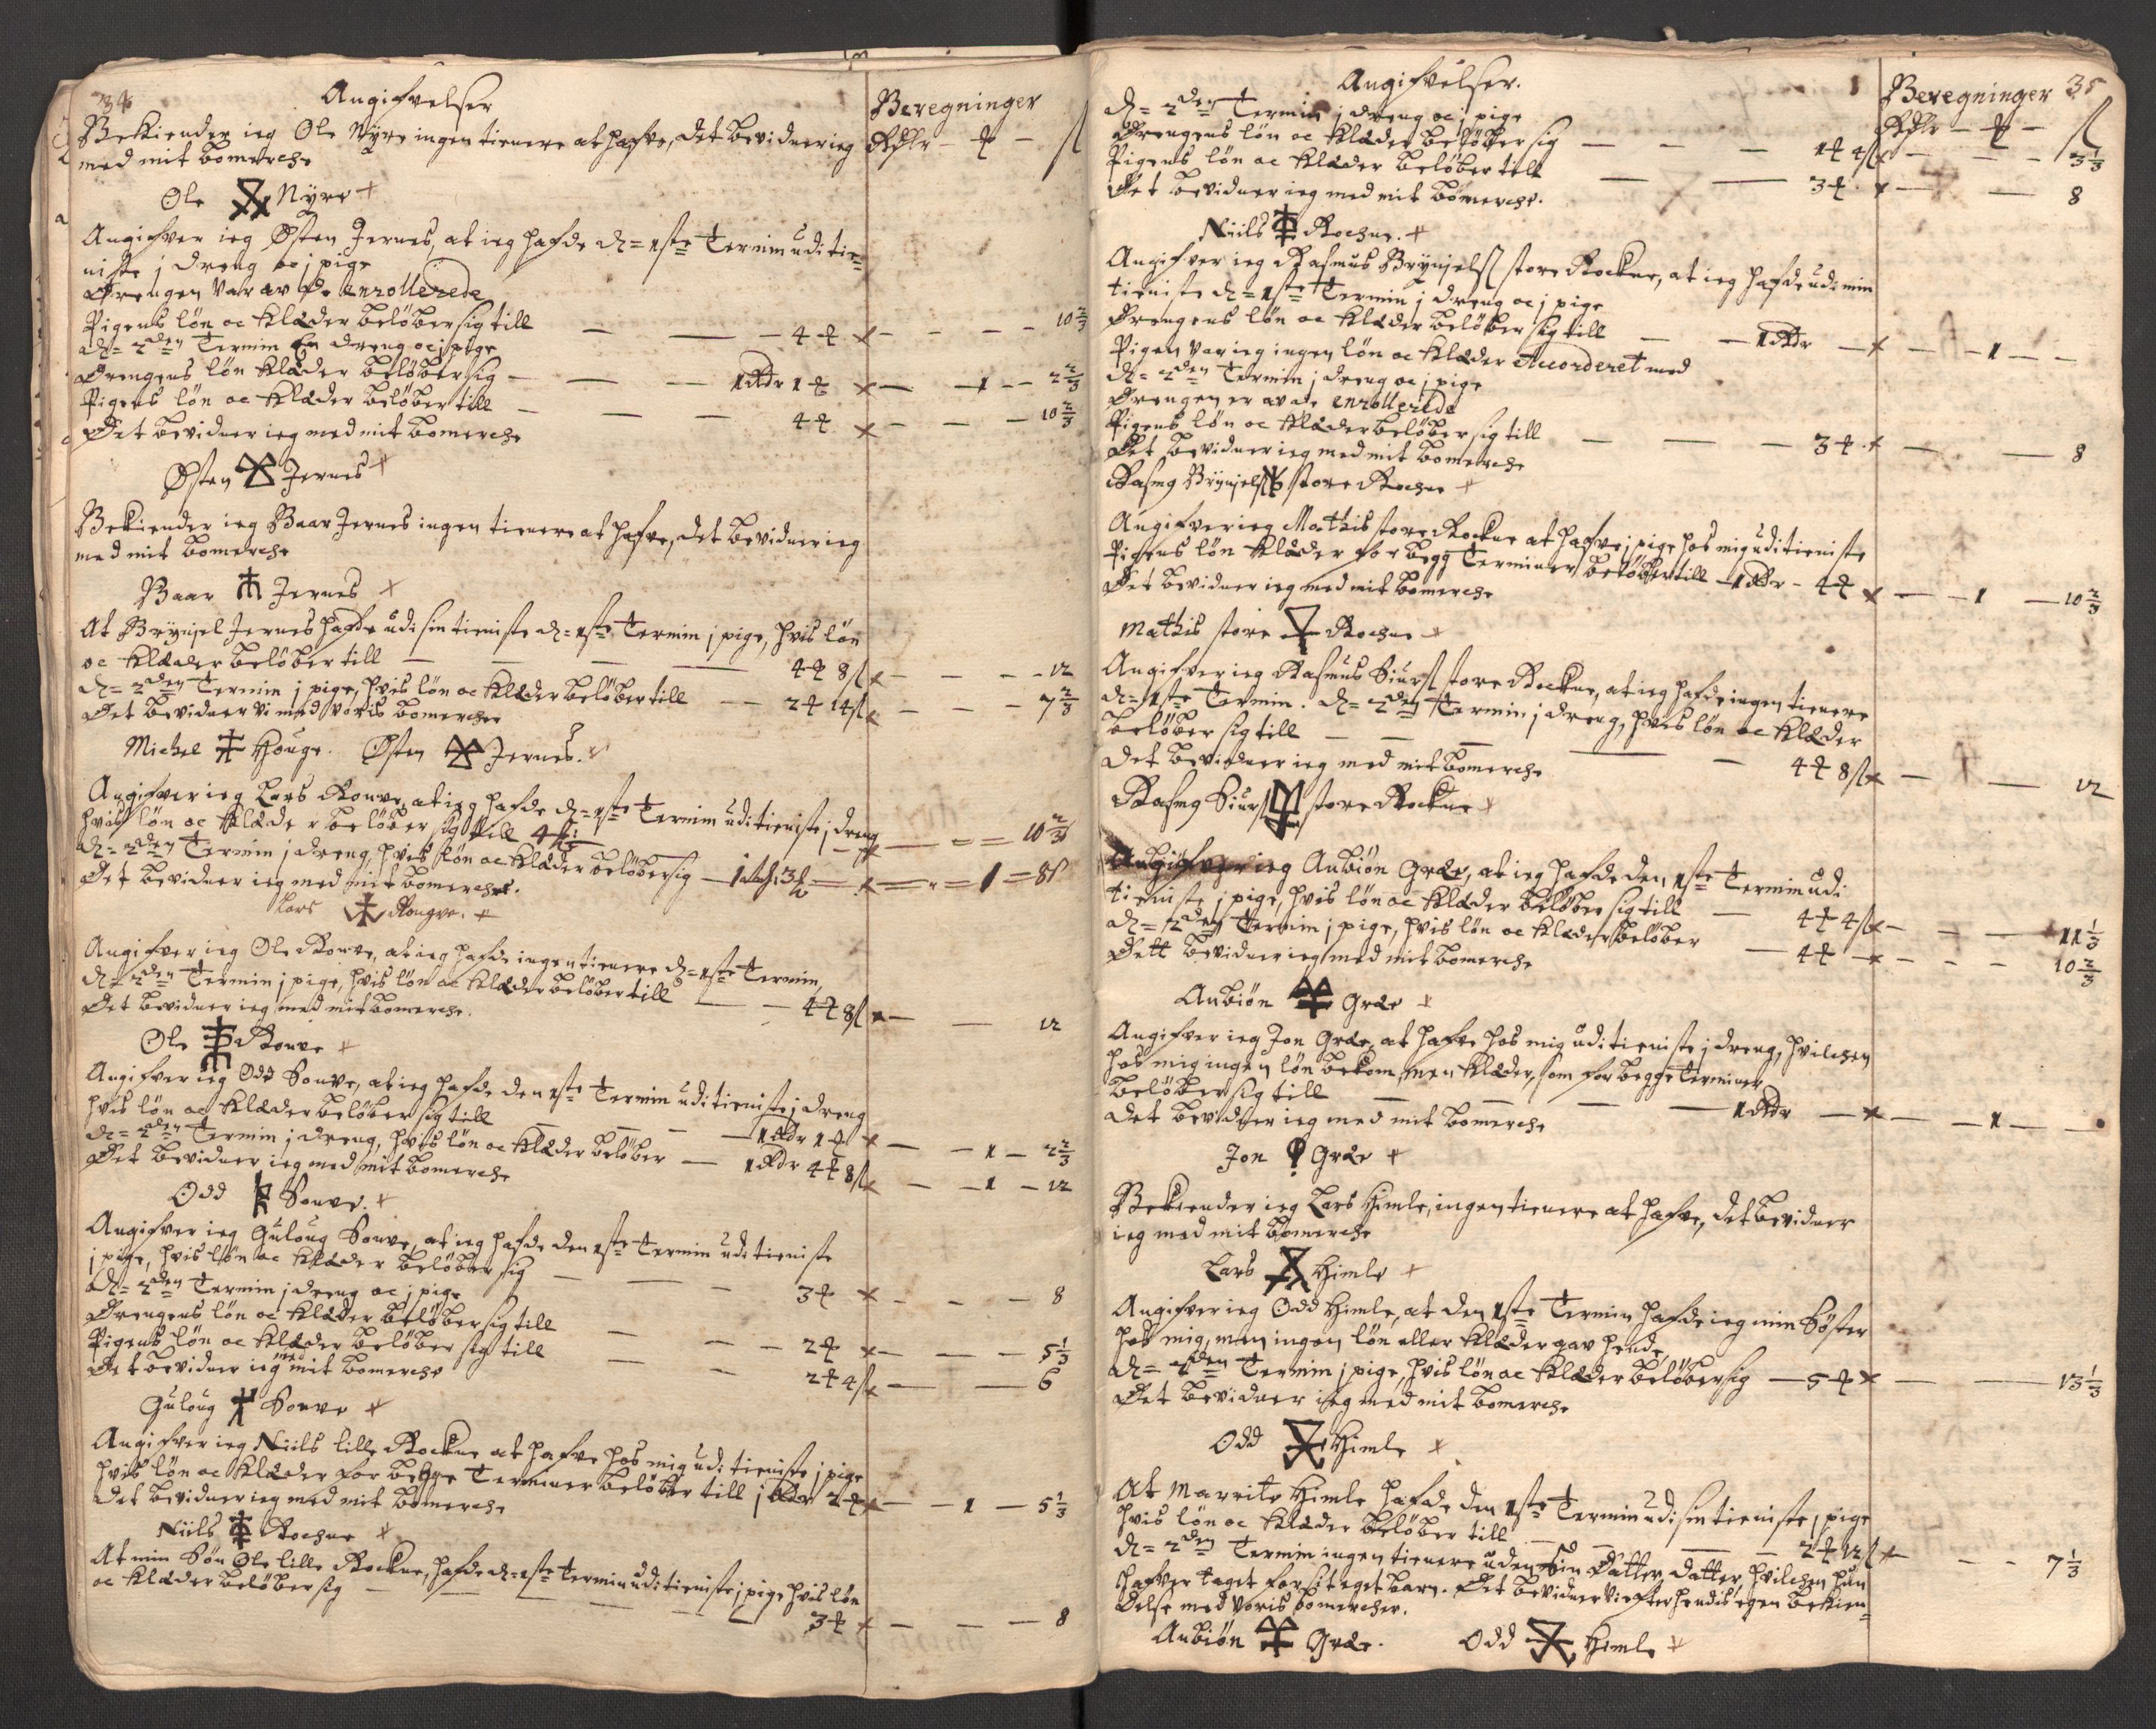 34
Angifvelser
Beregninger
Bekiender ieg Ole Nyre ingen tienere at hafve, det bevidner ieg
Rdlr – ₰ – ſſ
med mit bomerche
Ole Nyre
Angifver ieg Østen Jernes, at ieg hafde d= 1ste Termin udi tie=
niste j dreng oc j pige
Drengen var av de enrollerede
Pigens løn oc klæder beløber sig till — — 4 ₰ — — — 10 2/3
d= 2den Termin En dreng oc j pige
Drengens løn klæder beløber sig — — 1 Rdr 1 ₰ — 1 — 2 2/3
Pigens løn oc klæder beløber till — — — 4 ₰ — — — 10 2/3
Det bevidner ieg med mit bomerche
Østen Jernes
Bekiender ieg Baar Jernes ingen tienere at hafve, det bevidner ieg
med mit bomerche
Baar Jernes
At Brynjel Jernes hafde udi sin tieniste d= 1ste Termin j pige, hvis løn
oc klæder beløber till — — — 4 ₰ 8 ſſ — — — 12
d= 2den Termin j pige, hvis løn oc klæder beløber till — 2 ₰ 14 ſſ — — — 7 2/3
Det bevidner vi med voris bomercher
Michel Houge. Østen Jernes.
Angifver ieg Lars Ronve, at ieg hafde d= 1ste Termin udi tieniste j dreng
hvis løn oc klæder beløber sig till 4 — — 10 2/3
d= 2den Termin j dreng, hvis løn oc klæder beløber sig — 1 3 — 1 = 8
Det bevidner ieg med mit bomerche.
Lars Rongve.
Angifver ieg Ole Ronve, at ieg hafde ingen tienere d= 1ste Termin,
d= 2den Termin j pige, hvis løn oc klæder beløber till — 4 ₰ 8 ſſ — — 12
Det bevidner ieg med mit bomerche.
Ole Ronve
Angifver ieg Odd Sonve, at ieg hafde den 1ste Termin udi tieniste j dreng
hvis løn oc klæder beløber sig till — — — 1 Rdr 1 ₰ — — 1 — 2 2/3
d= 2den Termin j dreng, hvis løn oc klæder beløber — 1 Rdr 4 ₰ 8 ſſ — — 1 — 12
Det bevidner ieg med mit bomerche
Odd Sonve.
Angifver ieg Guloug Sonve, at ieg hafde den 1ste Termin udi tieniste
j pige, hvis løn oc klæder beløber sig — — — 3 ₰ — — — 8
d= 2den Termin j dreng oc j pige
Drengens løn oc klæder beløber sig till — — — 2 ₰ — — — 5 1/3
Pigens løn oc klæder beløber sig till — — 2 ₰ 4 ſſ — — 6
Det bevidner ieg med mit bomerche
Guloug Sonve
Angifver ieg Niils lille Rockne at hafve hos mig udi tieniste j pige
hvis løn oc klæder for begge Terminer beløber till j Rdr 2 ₰ — — 1 — 5 1/3
Det bevidner ieg med mit bomerche
Niils Rochne
At min Søn Ole lille Rockne, hafde d= 1ste Termin udi tieniste j pige hvis løn
oc klæder beløber sig — — — — 3 ₰ — — — 8
35
Angifvelser.
Beregninger
Rdlr – ₰ – ſſ
d= 2den Termin j dreng oc j pige
Drengens løn oc klæder beløber sig — — — 1 ₰ 4 ſſ — — — 3 1/3
Pigens løn oc klæder beløber till — — 3 ₰ — — 8
Det bevidner ieg med mit bomerche.
Niils Rochne.
Angifver ieg Rasmus Brynjelſſ store Rockne, at ieg hafde udi min
tieniste d= 1ste Termin j dreng oc j pige
Drengens løn oc klæder beløber sig till — — 1 Rdr — — — 1 — —
Pigen var ieg ingen løn oc klæder Accorderet med
d= 2den Termin j dreng oc j pige
Drengen er av de enrollerede
Pigens løn oc klæder beløber sig till — — — 3 ₰ — — 8
Det bevidner ieg med mit bomerche
Rasmg Brynjelſſ store Rochne
Angifver ieg Mathis store Rockne at hafve j pige hos mig udi tieniste
Pigens løn klæder for begg Terminer beløber till — 1 Rdr – 4 ₰ — — 1 — 10 2/3
Det bevidner ieg med mit bomerche
Mathis store Rochne
Angifver ieg Rasmus Siurſſ store Rockne, at ieg hafde ingen tienere
d= 1ste Termin. d= 2den Termin j dreng, hvis løn oc klæder
beløber sig till — — — — 4 ₰ 8 ſſ — — 12
Det bevidner ieg med mit bomerche
Rasmg Siurſſ store Rockne
Angifver ieg Anbiøn Græe, at ieg hafde den 1ste Termin udi
tieniste j pige, hvis løn oc klæder beløber sig till — 4 ₰ 4 ſſ — — — 11 1/3
d= 2den Termin j pige, hvis løn oc klæder beløber — 4 ₰ — — — — 10 2/3
Dett bevidner ieg med mit bomerche
Anbiøn Græe
Angifver ieg Jon Græe, at hafve hos mig udi tieniste j dreng, hvilchen
hos mig ingen løn bekom, men klæder, som for begge Terminer
beløber sig till — — — — 1 Rdr — — — 1 — —
Det bevidner ieg med mit bomerche
Jon Græe
Bekiender ieg Lars Himle, ingen tienere at hafve, det bevidner
ieg med mit bomerche
Lars Himle
Angifver ieg Odd Himle, at den 1ste Termin hafde ieg min Søster
hos mig, men ingen løn eller klæder gav hende,
d= 2den Termin j pige, hvis løn oc klæder beløber sig — 5 ₰ — — 13 1/3
Det bevidner ieg med mit bomerche
Odd Himle
At Marrite Himle hafde den 1ste Termin udi sin tieniste j pige
hvis løn oc klæder beløber till — — — 2 ₰ 12 ſſ — — — 7 1/3
d= 2den Termin ingen tienere uden Sin Datter datter, hvilchen hun
hafver taget for sit eget barn. Det bevidner vi efter hendis egen bekien=
delse med voris bomercher.
Anbiøn Græe. Odd Himle